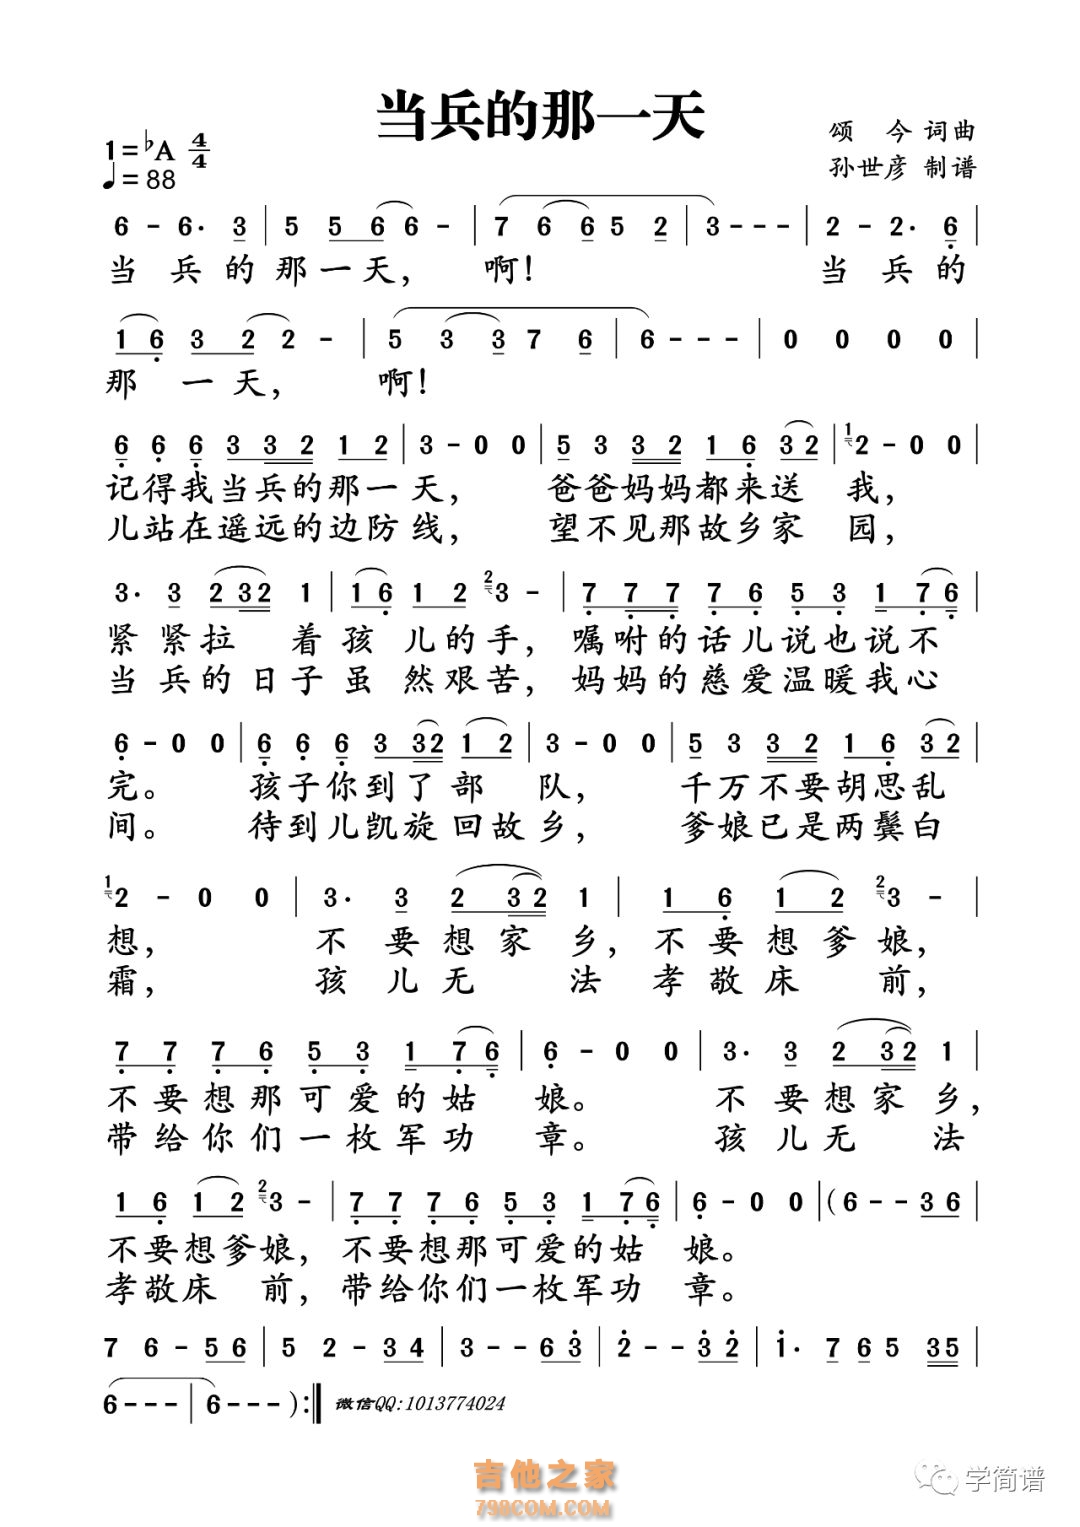 当兵的那一天
1=♭A 4/4
颂 今 词曲
♩=88
孙世彦 制谱
6 - 6· 3 | 5 5 6 6 - | 7 6 6 5 2 | 3 - - - | 2 - 2· 6 |
当 兵 的 那 一 天， 啊！ 当 兵 的
1 6 3 2 2 - | 5 3 3 7 6 | 6 - - - | 0 0 0 0 |
那 一 天， 啊！
6 6 6 3 3 2 1 2 | 3 - 0 0 | 5 3 3 2 1 6 3 2 | 1 2 - 0 0 |
记得我当兵的那一天， 爸爸妈妈都来送 我，
儿站在遥远的边防线， 望不见那故乡家 园，
3· 3 2 3 2 1 | 1 6 1 2 2 3 - | 7 7 7 7 6 5 3 1 7 6 |
紧 紧 拉 着 孩 儿 的 手， 嘱咐的话儿说也说不
当 兵 的 日 子 虽 然 艰 苦， 妈妈的慈爱温暖我心
6 - 0 0 | 6 6 6 3 3 2 1 2 | 3 - 0 0 | 5 3 3 2 1 6 3 2 |
完。 孩子你到了部 队， 千万不要胡思乱
间。 待到儿凯旋回故乡， 爹娘已是两鬓白
1 2 - 0 0 | 3· 3 2 3 2 1 | 1 6 1 2 2 3 - |
想， 不 要 想 家 乡， 不 要 想 爹 娘，
霜， 孩 儿 无 法 孝 敬 床 前，
7 7 7 6 5 3 1 7 6 | 6 - 0 0 | 3· 3 2 3 2 1 |
不要想那可爱的姑 娘。 不 要 想 家 乡，
带给你们一枚军功 章。 孩 儿 无 法
1 6 1 2 2 3 - | 7 7 7 6 5 3 1 7 6 | 6 - 0 0 | (6 - - 3 6 |
不要想爹娘， 不要想那可爱的姑 娘。
孝敬床 前， 带给你们一枚军功 章。
7 6 - 5 6 | 5 2 - 3 4 | 3 - - 6 3 | 2 - - 3 2 | 1· 7 6 5 3 5 |
6 - - - | 6 - - - ):‖ 微信QQ:1013774024
吉他之家
798COM.COM
学简谱